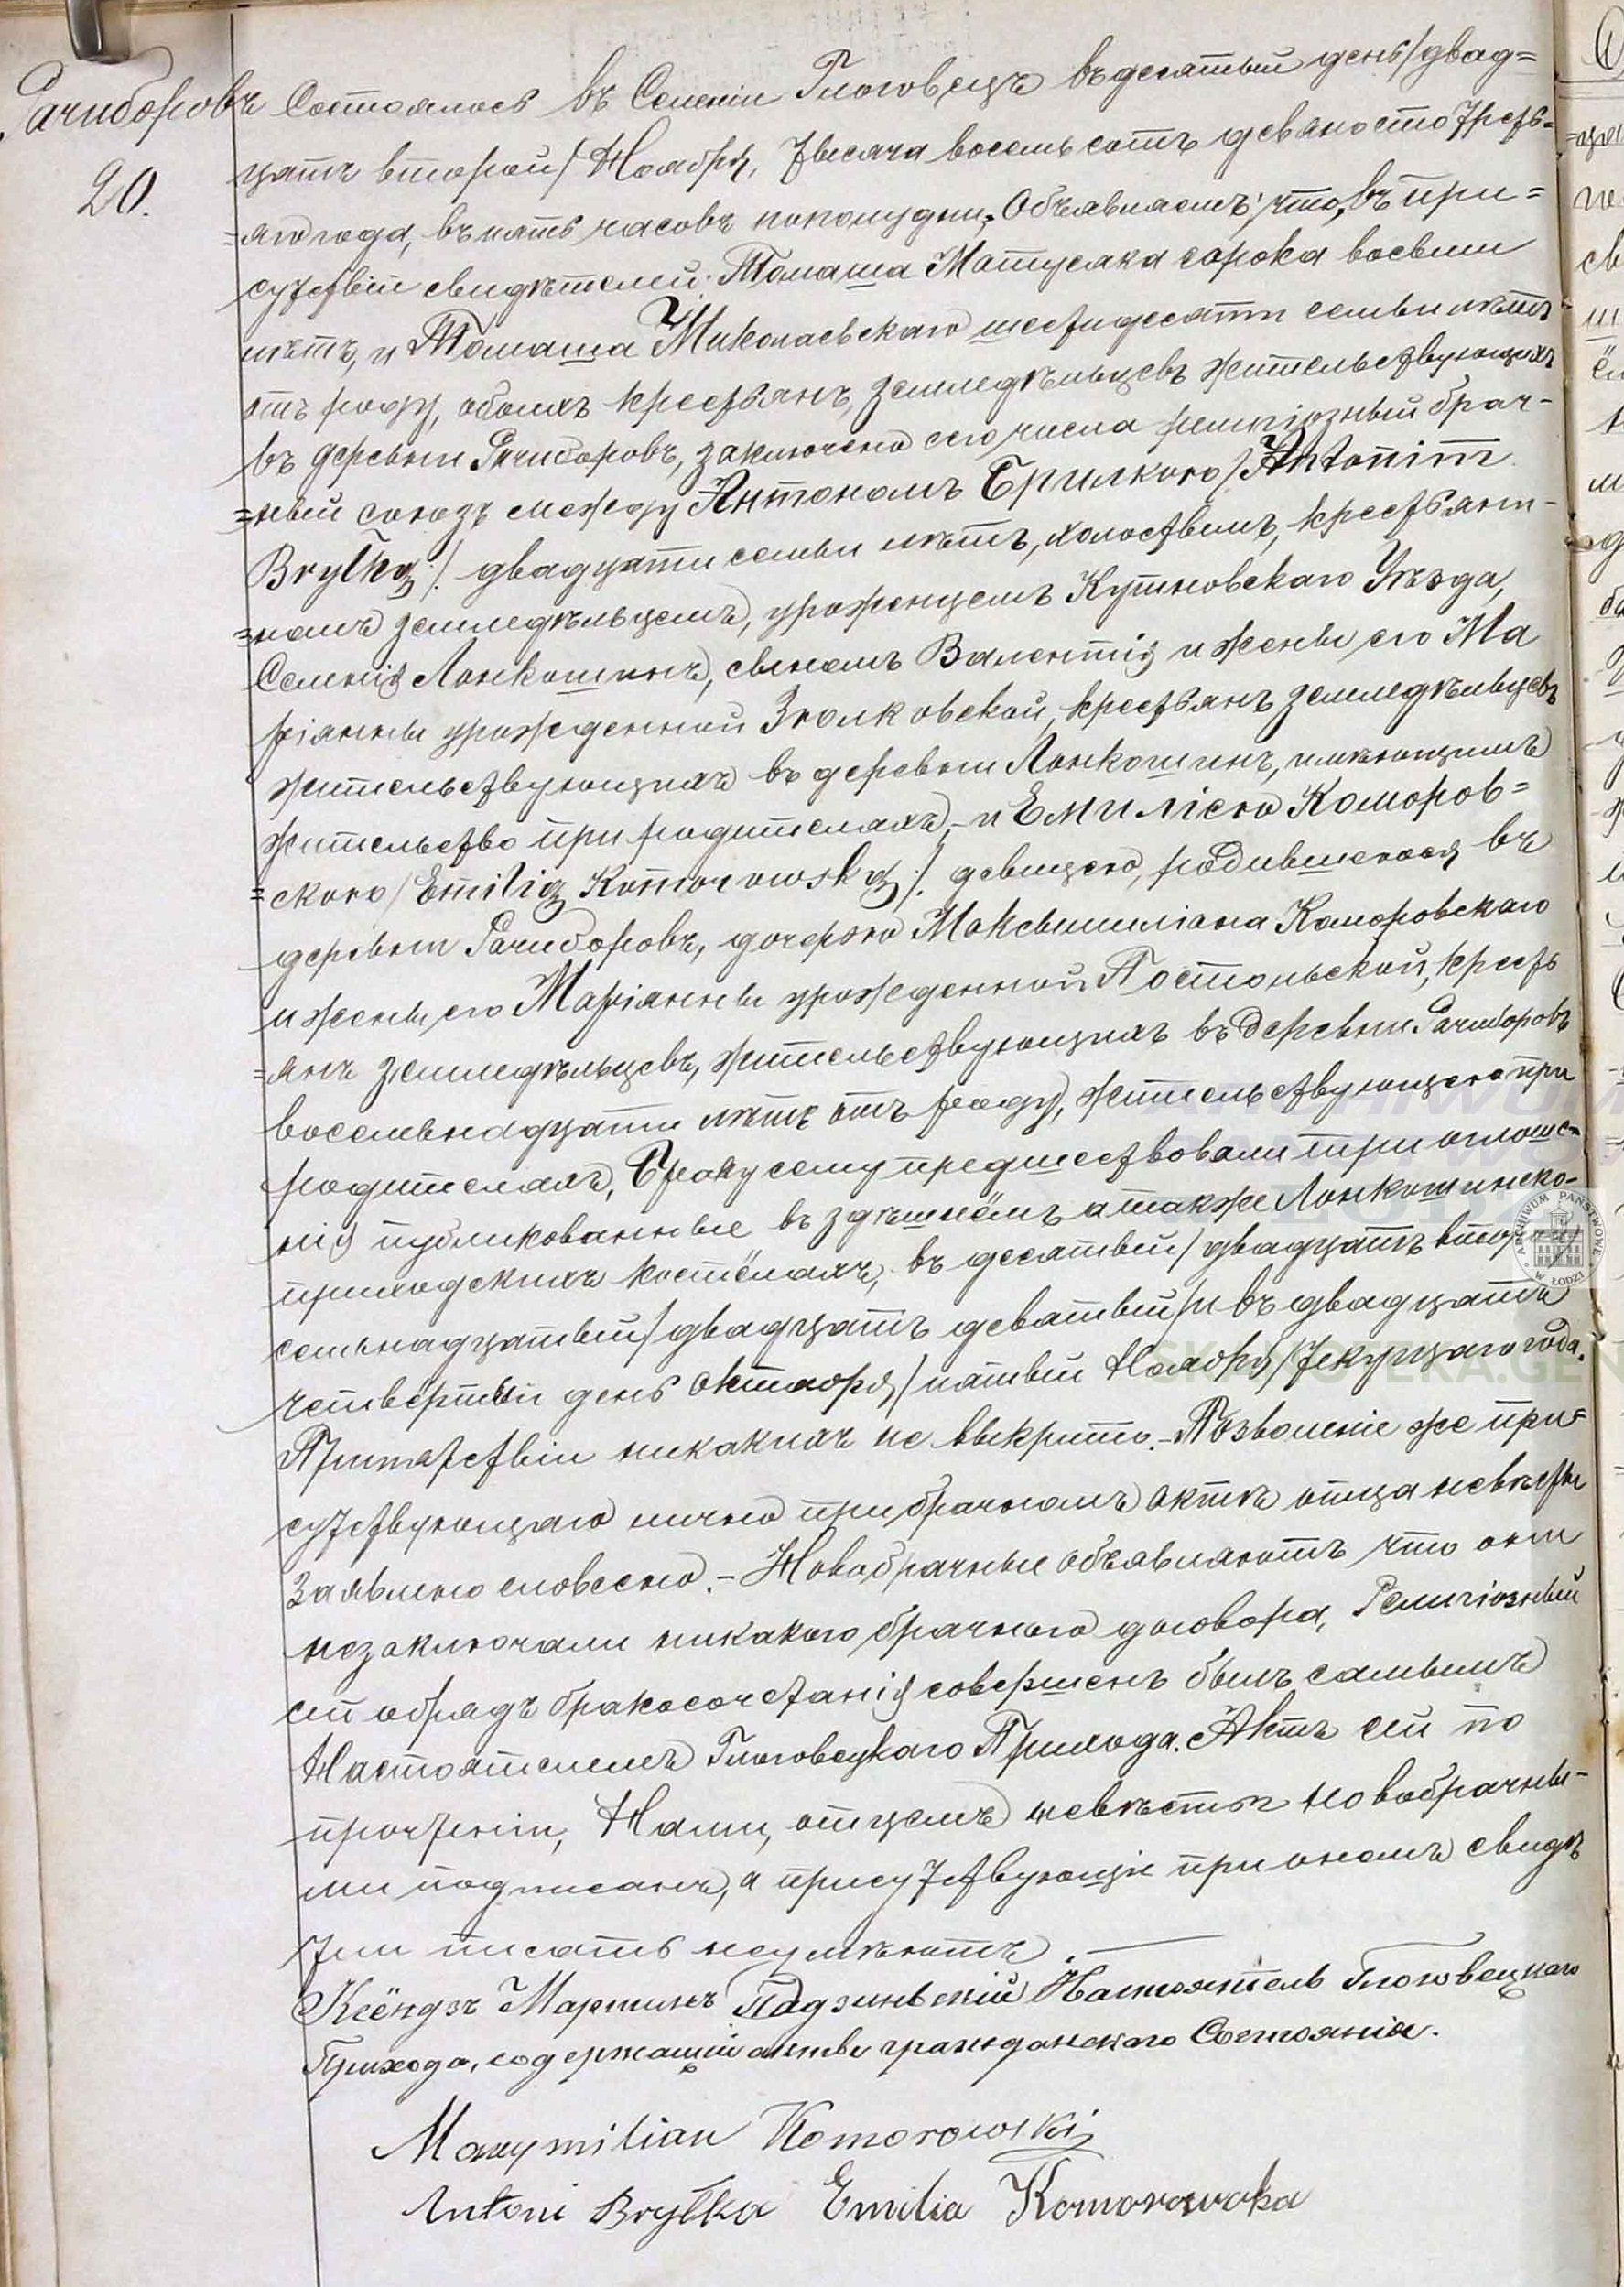 Рачиборовъ
20.
Состоялось въ Селеніи Глоговецъ въ десятый день/двад=
цать второй/ Ноября, тысяча восемьсотъ девяносто треть=
=яго года, въ пять часовъ пополудни. Объявляемъ; что, въ при=
сутствіи свидѣтелей: Томаша Матусяка сорока восьми
лѣтъ, и Томаша Миколаевскаго шестидесяти семьи лѣтъ
отъ роду, обоихъ крестьянъ, земледѣльцевъ жительствующихъ
въ деревни Рачиборовъ, заключено сего числа религіозный брач-
=ный союзъ между Антономъ Брилкою/Antonim
Bryłką:/. двадцати семьи лѣтъ, холостымъ, крестьяни-
=номъ земледѣльцемъ, уроженцемъ Кутновскаго Уѣзда,
Селенія Лонкошинъ, сыномъ Валентія и жены его Ма
ріянны урожденной Зіолковской, крестьянъ земледѣльцевъ
жительствующихъ въ деревни Лонкошинъ, имѣющимъ
жительство при родителяхъ, – и Емиліею Коморов=
=скою/Emilią Komorowską:/. девицею, родившеюся въ
деревни Рачиборовъ, дочерью Максымиліана Коморовскаго
и жены его Маріянны урожденной Постольской, кресть
=янъ земледѣльцевъ, жительствующихъ въ Деревни Рачиборовъ
восемьнадцати лѣтъ отъ роду, жительствующею при
родителяхъ, Браку сему предшествовали три оглаше-
нія публикованные въ здѣшнёмъ а также Лонкошинско-
приходскихъ костёлахъ, въ десятый/двадцать второй
семьнадцатый/двадцать девятый/и въ двадцать
четвёртый день октября/пятый Ноября/текущаго года.
Припятствіи никакихъ не выкрыто. – Позволеніе же при=
сутствующаго лично при брачномъ актѣ отца невѣсты
заявлено словесно. – Новобрачные объявляютъ что они
незаключали никакого брачнаго договора, Религіозный
сій обрядъ бракосочетанія совершенъ былъ самымъ
Настоятелемъ Глоговецкаго Прихода. Актъ сей по
прочтеніи, Нами, отцемъ невѣсты и новобрачны-
ми подписанъ, а присутствующіе при ономъ свидѣ
тели писать неумѣютъ.
Ксёндзъ Мартинъ Падзинскій Настоятель Глоговецкаго
Прихода, содержащій акты гражданскаго Состоянія.
Maxymilian Komorowski
Antoni Bryłka Emilia Komorowska
ARCHIWUM PAŃSTWOWE W ŁODZI